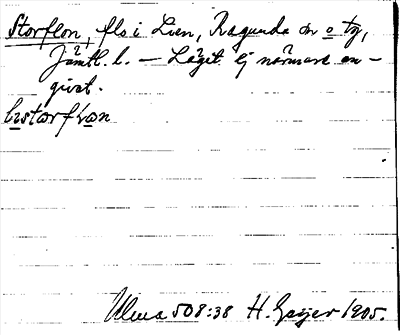 Storflon, fls i Lien, Ragunda sn o tg,
Jämtl. l. — Läget ej närmare an-
givet.
Ulma 508:38 H. Geijer 1905.